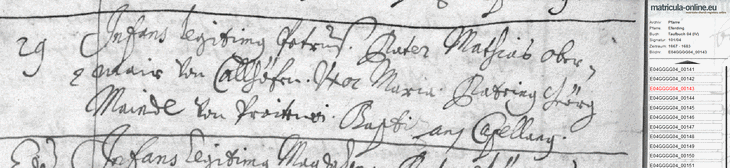 29 Infans legitimus Petrus. Pater Mathias ober-
mair von Vxor Maria. Patrinus Jörg
von Baptizans Capellanus.
Infans legitima
matricula-online.eu
Archiv: Pfarre
Pfarre: Eferding
Buch: Taufbuch 04 (IV)
Signatur: 101/04
Zeitraum: 1667 - 1683
Bildnr: E04GGGG04_00143
E04GGGG04_00141
E04GGGG04_00142
E04GGGG04_00143
E04GGGG04_00144
E04GGGG04_00145
E04GGGG04_00146
E04GGGG04_00147
E04GGGG04_00148
E04GGGG04_00149
E04GGGG04_00150
E04GGGG04_00151